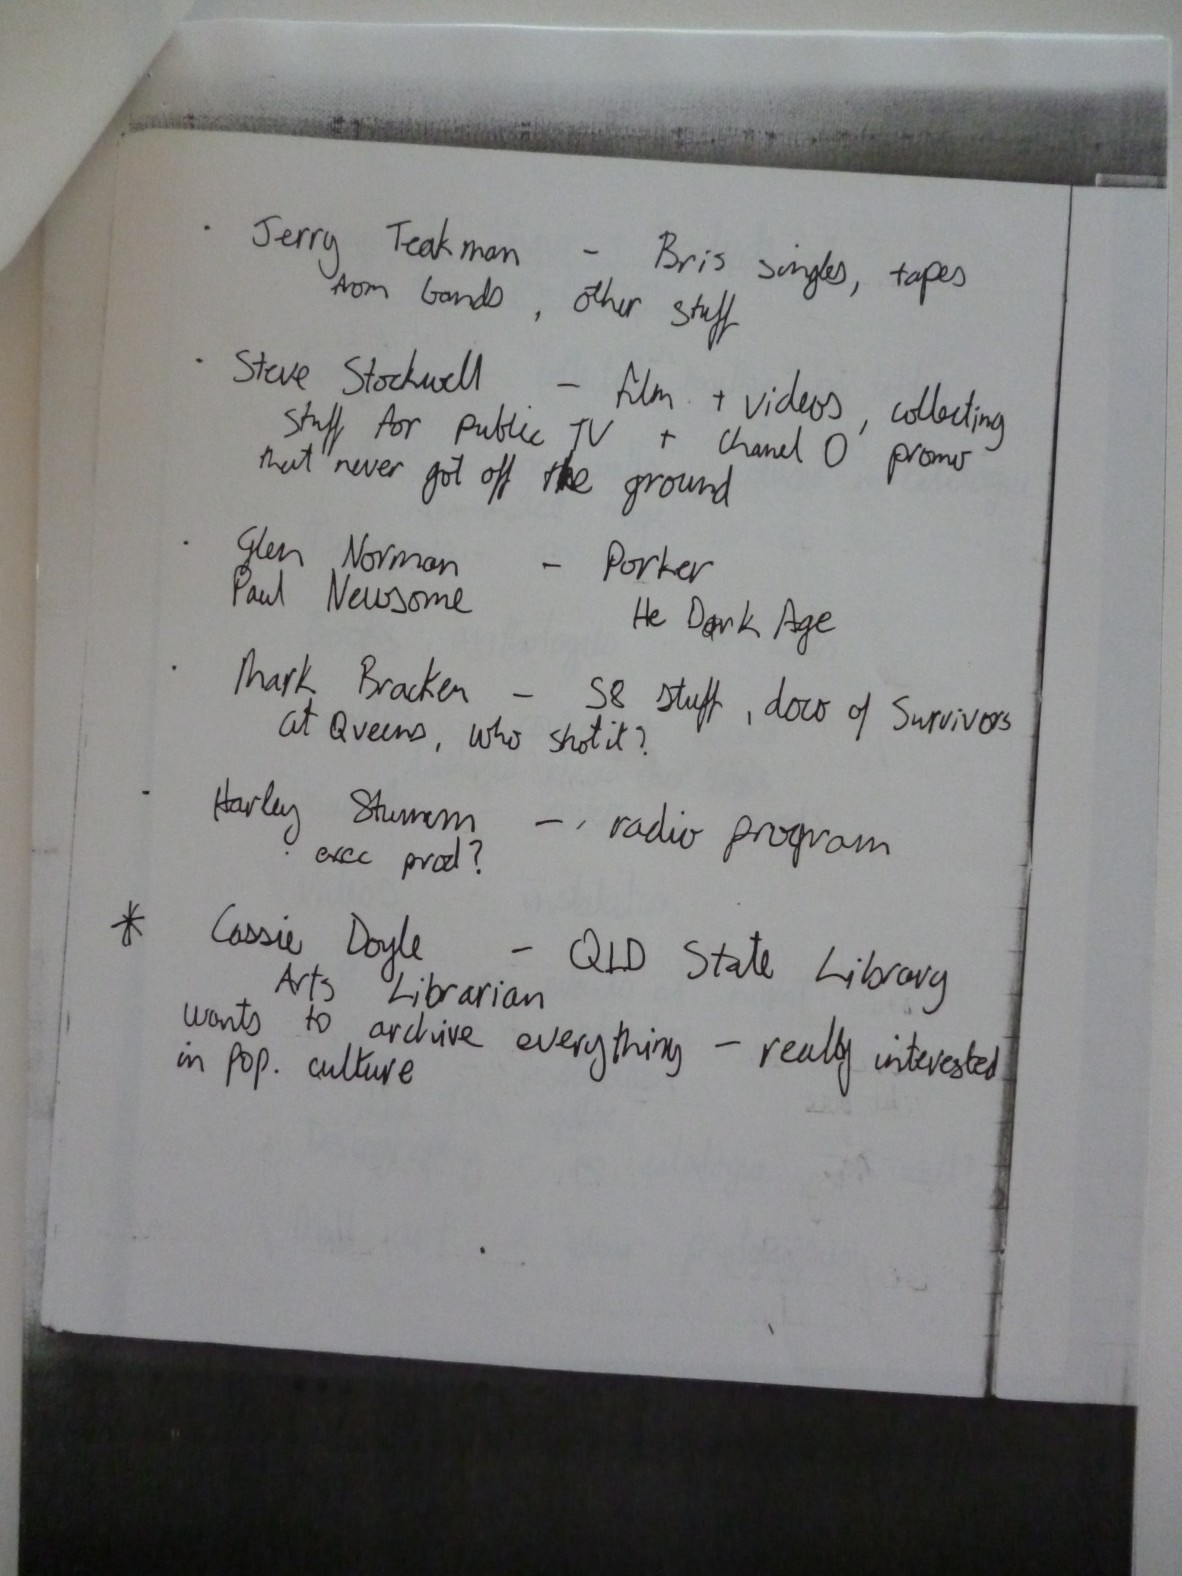 · Jerry Teakman - Bris singles, tapes
from bands, other stuff
· Steve Stockwell - film + videos, collecting
stuff for public TV + Chanel O promo
that never got off the ground
· Glen Norman - Porker
Paul Newsome He Dark Age
· Mark Bracken - S8 stuff, doco of Survivors
at Queens, who shot it?
· Harley - radio program
exec prod?
* Cassie Doyle - QLD State Library
Arts Librarian
wants to archive everything - really interested
in pop. culture